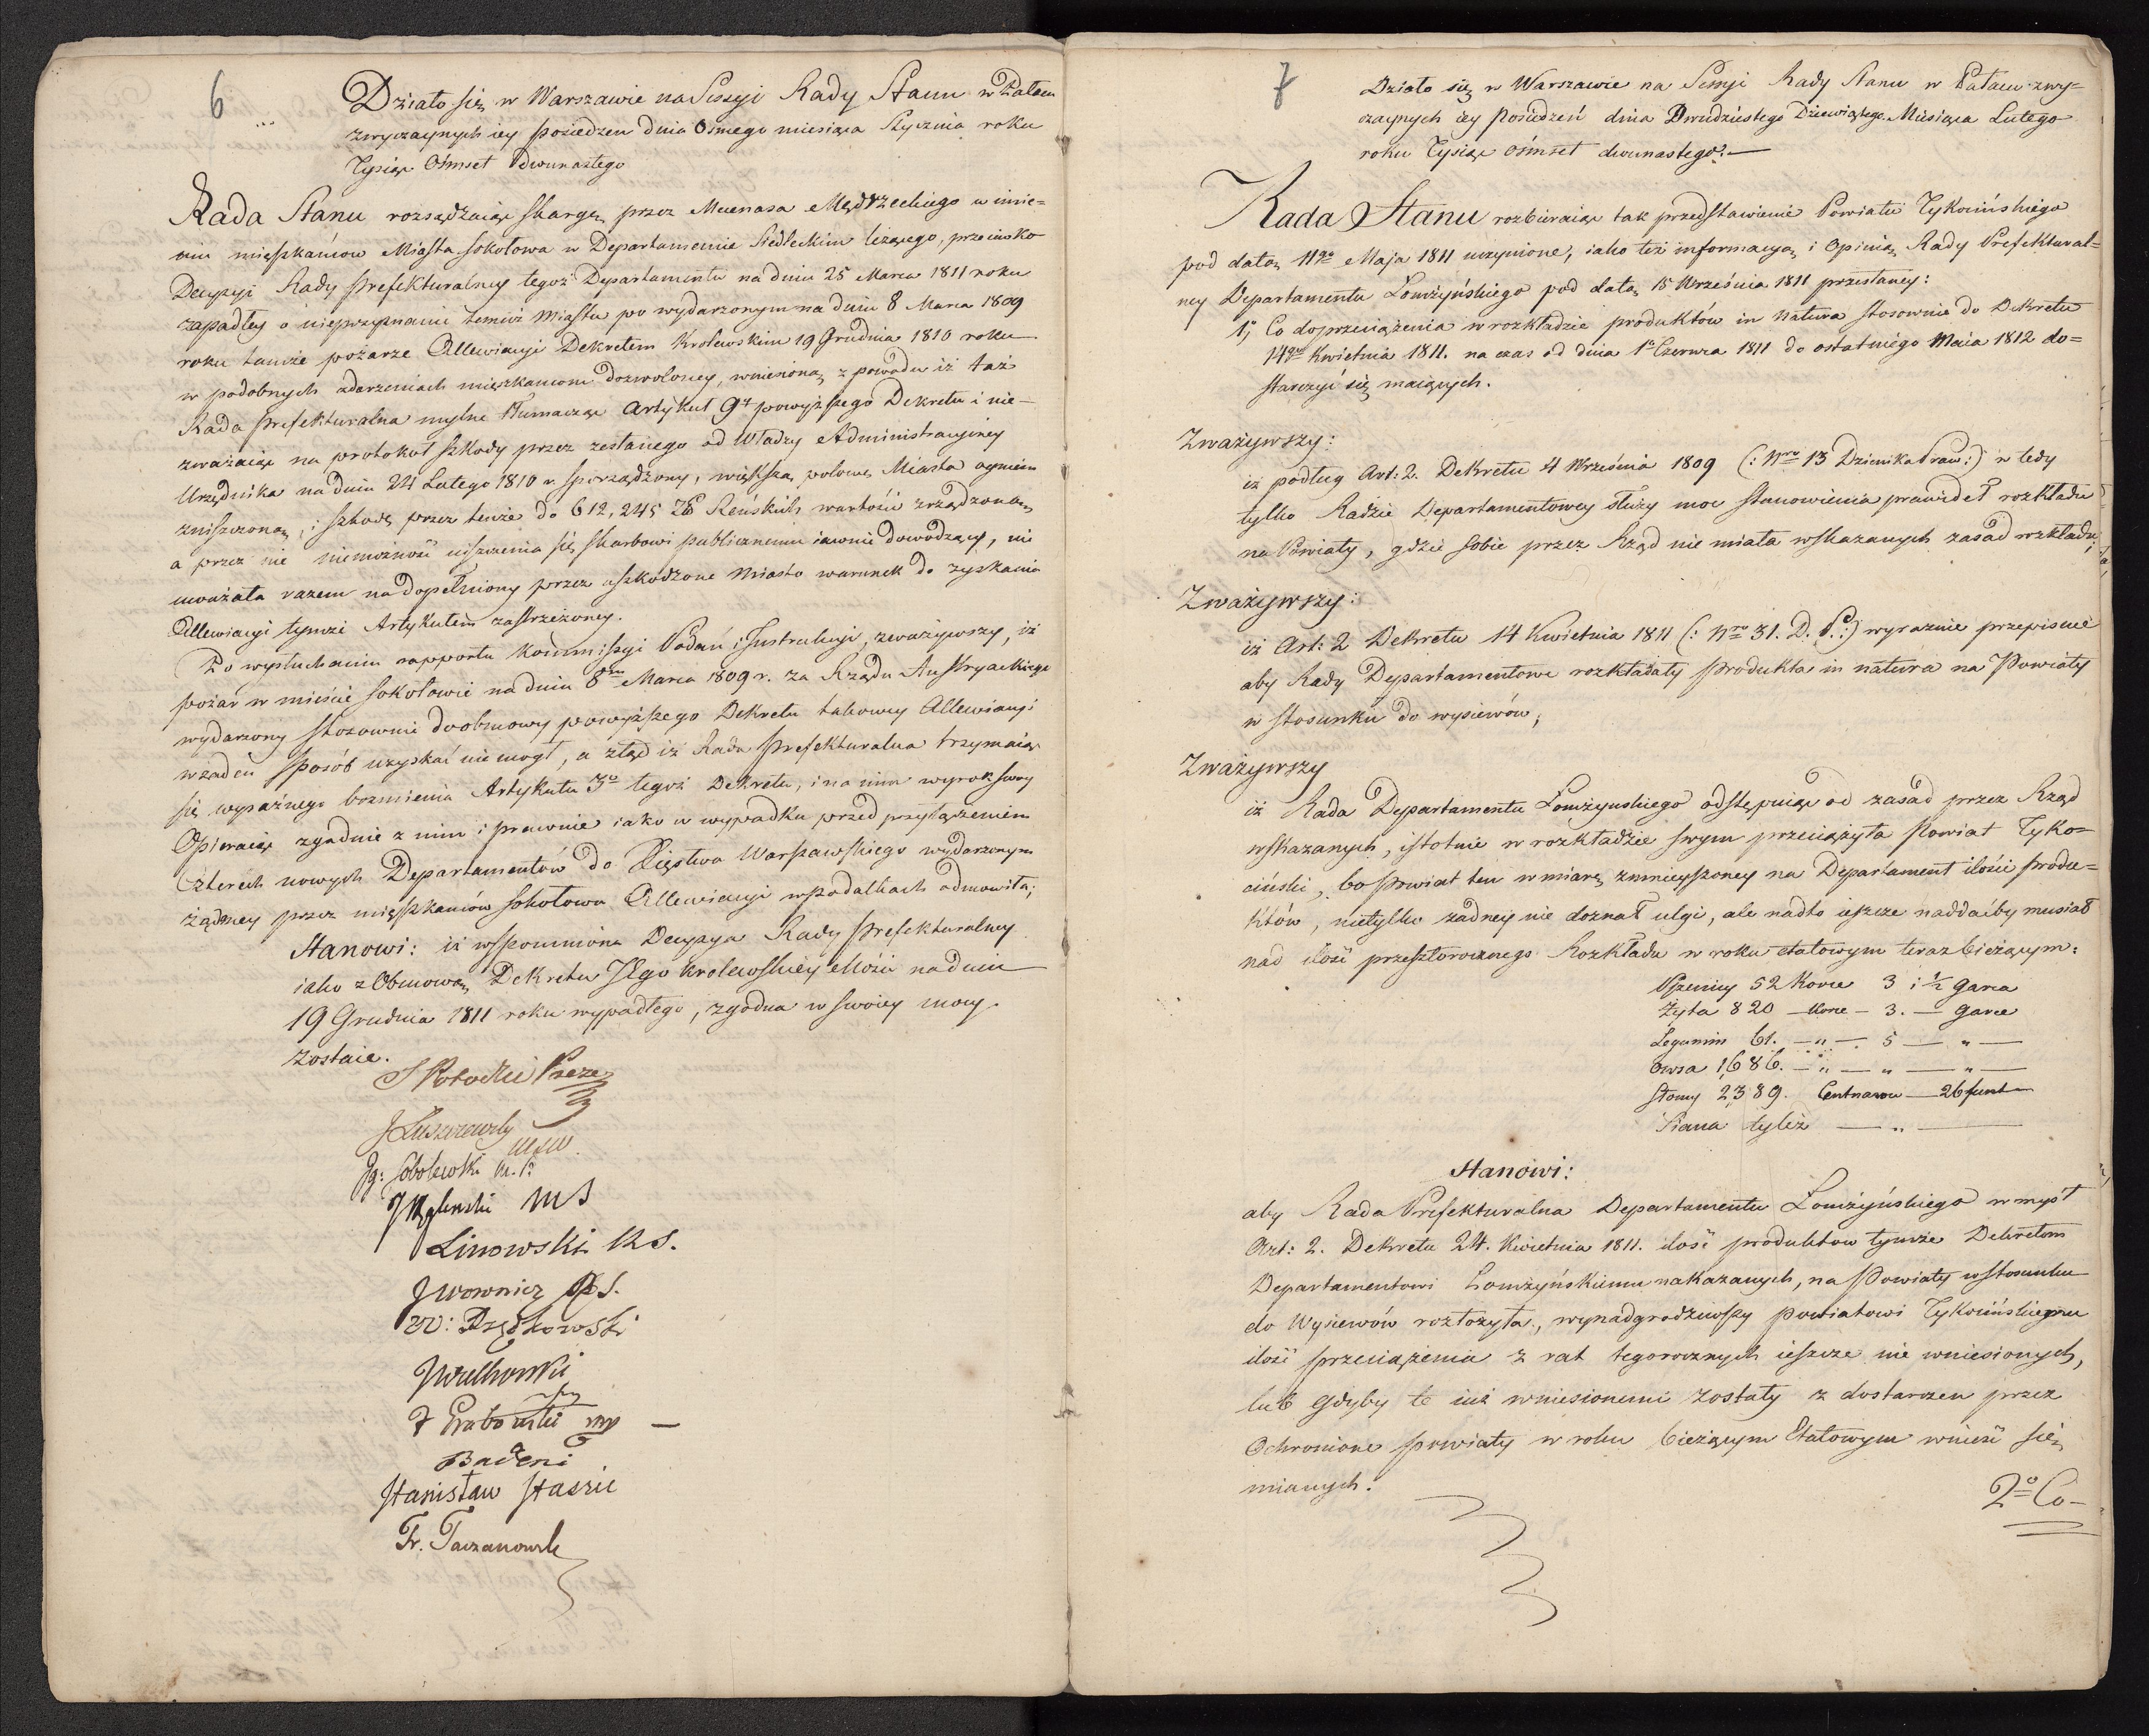 6
Działo się w Warszawie na Sessyi Rady Stanu w Pałacu
zwyczaynych iey posiedzeń dnia Osmego miesiąca Stycznia roku
Tysiąc Ośmset dwunastego
Rada Stanu rozsądzaiąc skargę przez Mecenasa Mędrzeckiego w imie=
niu mięszkańców Miasta Sokołowa w Departamencie Siedleckim leżącego, przeciwko
Decyzyi Rady Prefekturalney tegoż Departamentu na dniu 25 Marca 1811 roku
zapadłey o nieprzyznaniu temuż Miastu po wydarzonym na dniu 8 Marca 1809
roku tamże pożarze Allewiacyi Dekretem Krolewskim 19 Grudnia 1810 roku
w podobnych zdarzeniach mięszkańcom dozwoloney, wniesioną z powodu iż taż
Rada Prefekturalna mylnie tłumacząc Artykuł 9ty powyższego Dekretu i nie-
zważaiąc na protokół szkody przez zesłanego od Władzy Administracyiney
Urzędnika na dniu 24 Lutego 1810 r. sporządzony, większą połowę Miasta ogniem
zniszczoną, i szkodę przez tenże do 612,245 Reńskich wartości zrządzoną,
a przez nie niemożność uiszczenia się skarbowi publicznemu iawnie dowodzący, nie
uważała razem na dopełniony przez uszkodzone Miasto warunek do zyskania
Allewiacyi tymże Artykułem zastrzeżoney.
Po wysłuchaniu rapportu Kommissyi Podań i Instrukcyi, zważywszy, iż
pożar w mieście Sokołowie na dniu 8mo Marca 1809 r. za Rządu Austryackiego
wydarzony stosownie do osnowy powyższego Dekretu takowey Allewiacyi
w żaden sposób uzyskać nie mogł, a ztąd iż Rada Prefekturalna trzymaiąc
się wyraźnego brzmienia Artykułu 3o tegoż Dekretu, i na nim wyrok swoy
Opieraiąc zgodnie z nim i prawnie iako w wypadku przed przyłączeniem
Czterech nowych Departamentów do Xięstwa Warszawskiego wydarzonym
żądaney przez mięszkańców Sokołowa Allewiacyi w podatkach odmowiła;
Stanowi: iż wspomniona Decyzya Rady Prefekturalney
iako z Osnową Dekretu JEgo Krolewskiey Mości na dniu
19 Grudnia 1811 roku wypadłego, zgodna w swoiey mocy
zostaie.
S Potocki Prezes
J Łuszczewski
MSW.
Ig: Sobolewski M. P.
J Węgleński MS
Linowski R S.
J Woronicz R S.
W: Drzewowski
J Wielhorski
F Grabowski mp
Badeni
Stanisław Staszic
Fr. Taczanowski
7
Działo się w Warszawie na Sessyi Rady Stanu w Pałacu zwy=
czaynych iey posiedzeń dnia Dwudziestego Dziewiątego Miesiąca Lutego
roku Tysiąc ośmset dwunastego.
Rada Stanu rozbieraiąc tak przedstawienie Powiatu Tykocińskiego
pod datą 11go Maja 1811 uczynione, iako też informacyą i Opinią Rady Prefektural=
ney Departamentu Łomżyńskiego pod datą 15 Września 1811 przesłaney:
1; Co do przeciążenia w rozkładzie produktów in natura stosownie do Dekretu
14go Kwietnia 1811. na czas od dnia 1o Czerwca 1811 do ostatniego Maia 1812 do=
starczyć się maiących.
Zważywszy:
iż podług Art: 2. Dekretu 4 Września 1809 (: Nro 13 Dziennika Praw:) w tedy
tylko Radzie Departamentowey służy moc stanowienia prawideł rozkładu
na Powiaty, gdzie sobie przez Rząd nie miała wskazanych zasad rozkładu,
Zważywszy:
iż Art: 2 Dekretu 14 Kwietnia 1811 (: Nro 31. D. P.:) wyraźnie przepisuie
aby Rady Departamentowe rozkładały produkta in natura na Powiaty
w stosunku do wysiewów,
Zważywszy
iż Rada Departamentu Łomżynskiego odstępuiąc od zasad przez Rząd
wskazanych, istotnie w rozkładzie swym przeciążyła Powiat Tyko=
ciński, bo powiat ten w miarę zmnieyszoney na Departament ilości produ=
któw, nietylko żadney nie doznał ulgi, ale nadto ieszcze naddaćby musiał
nad ilość przeszłorocznego Rozkładu w roku etatowym teraz bieżącym:
Pszenicy 52 Korce 3 i ½ garca
Żyta 820 — Korce — 3. — garce
Legumin 61. — „ — 5 — „ —
Owsa 1,686. — „ — „ — „ —
Słomy 2,389. Centnarow — 26 funt
Siana tyleż — „ —
Stanowi:
aby Rada Prefekturalna Departamentu Łomżyńskiego w myśl
Art: 2. Dekretu 24. Kwietnia 1811. ilość produktow tymże Dekretem
Departamentowi Łomżyńskiemu nakazanych, na Powiaty w stosunku
do Wysiewów rozłożyła, wynadgrodziwszy powiatowi Tykocińskiemu
ilość przeciążenia z rat tegorocznych ieszcze nie wniesionych,
lub gdyby te iuż wniesionemi zostały z dostarczeń przez
Ochronione powiaty w roku bieżącym Etatowym wnieść się
mianych.
2o Co-